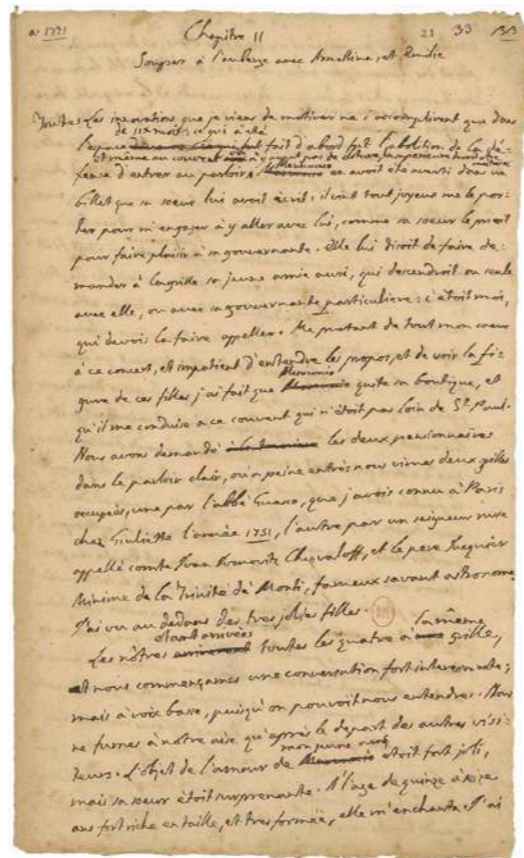 a: 1771 Chapitre II 21 33 1313
Souper à l'auberge avec Armelline, et Emilie
Toutes les innovations que je viens de motiver ne s'accomplirent que dans
de six mois; ce qui a été
l'espace fut fait d'abord fut l'abolition de la dé-
Et même au couvent n'y ayant pas de cloture, la superieure devoit être
fense d'entrer au parloir. en avoit été averti dans un
billet que sa soeur lui avoit écrit; il vint tout joyeux me le por-
ter pour m'engager à y aller avec lui, comme sa soeur le prioit
pour faire plaisir à sa gouvernante. Elle lui disoit de faire de-
mander à la grille sa jeune amie aussi, qui descendroit ou seule
avec elle, ou avec sa gouvernante particuliere: c'étoit moi,
qui devois la faire appeller. Me pretant de tout mon coeur
à ce concert, et impatient d'entendre les propos, et de voir la fi-
Menicuccio
gure de ces filles j'ai fait que quite sa boutique, et
qu'il me conduise a ce couvent qui n'étoit pas loin de St. Paul.
Nous avons demandé les deux pensionnaires
dans le parloir clair, où à peine entrés nous vimes deux grilles
occupées, une par l'abbé Guasco, que j'avois connu à Paris
chez Giuliette l'année 1751, l'autre par un seigneur russe
appellé comte Ivan Ivanovitz Chouvaloff, et le pere Jacquier
Minime de la Trinité de' Monti, fameux savant astronome.
J'ai vu au dedans des tres jolies filles.
étant arrivées la même
Les nôtres toutes les quatre à grille,
nous commençames une conversation fort interessante;
mais à voix basse, puisqu'on pouvoit nous entendre. Nous
ne fumes à notre aise qu'après le depart des autres visi-
mon jeune ami
teurs. L'objet de l'amour de étoit fort joli,
mais sa soeur étoit surprenante. A l'age de quinze à seize
ans fort riche en taille, et tres formée, elle m'enchanta. J'ai